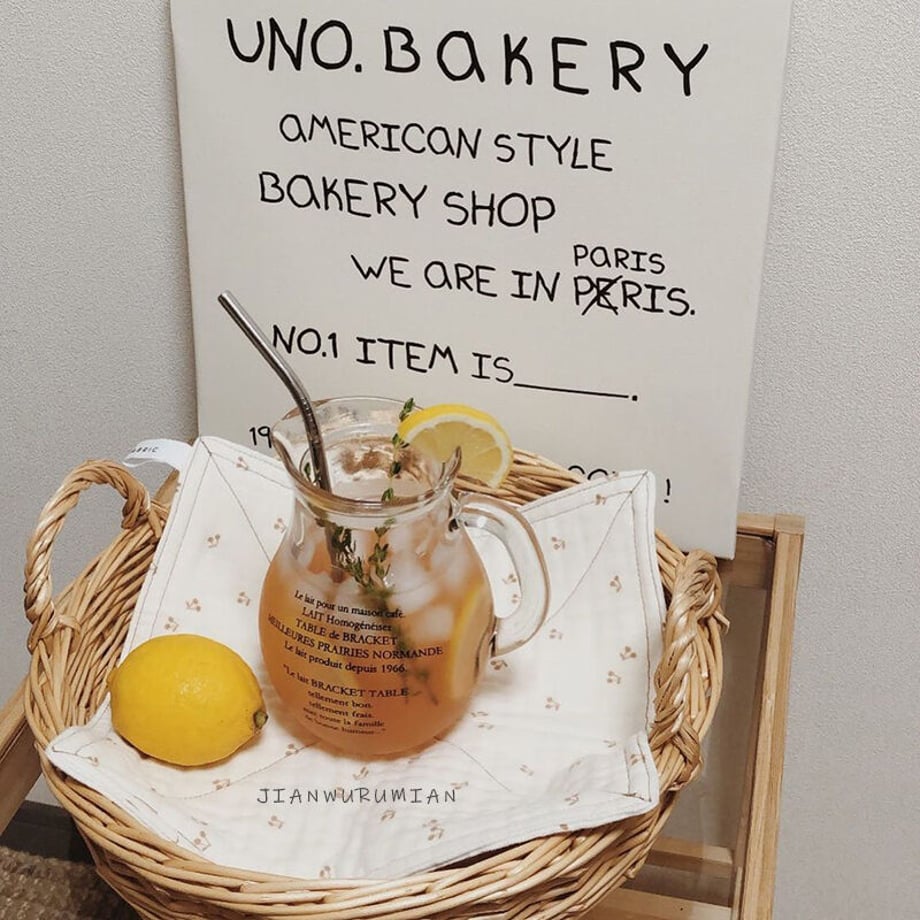 UNO. BAKERY
AMERICAN STYLE
BAKERY SHOP
PARIS
WE ARE IN PERIS.
NO.1 ITEM IS______.
19
!
Le lait pour un maison café.
LAIT Homogénéiser
TABLE de BRACKET
MEILLEURES PRAIRIES NORMANDE
Le lait produit depuis 1966.
"Le lait BRACKET TABLE
tellement bon.
tellement frais.
met toute la famille
de bonne humeur..."
JIANWURUMIAN